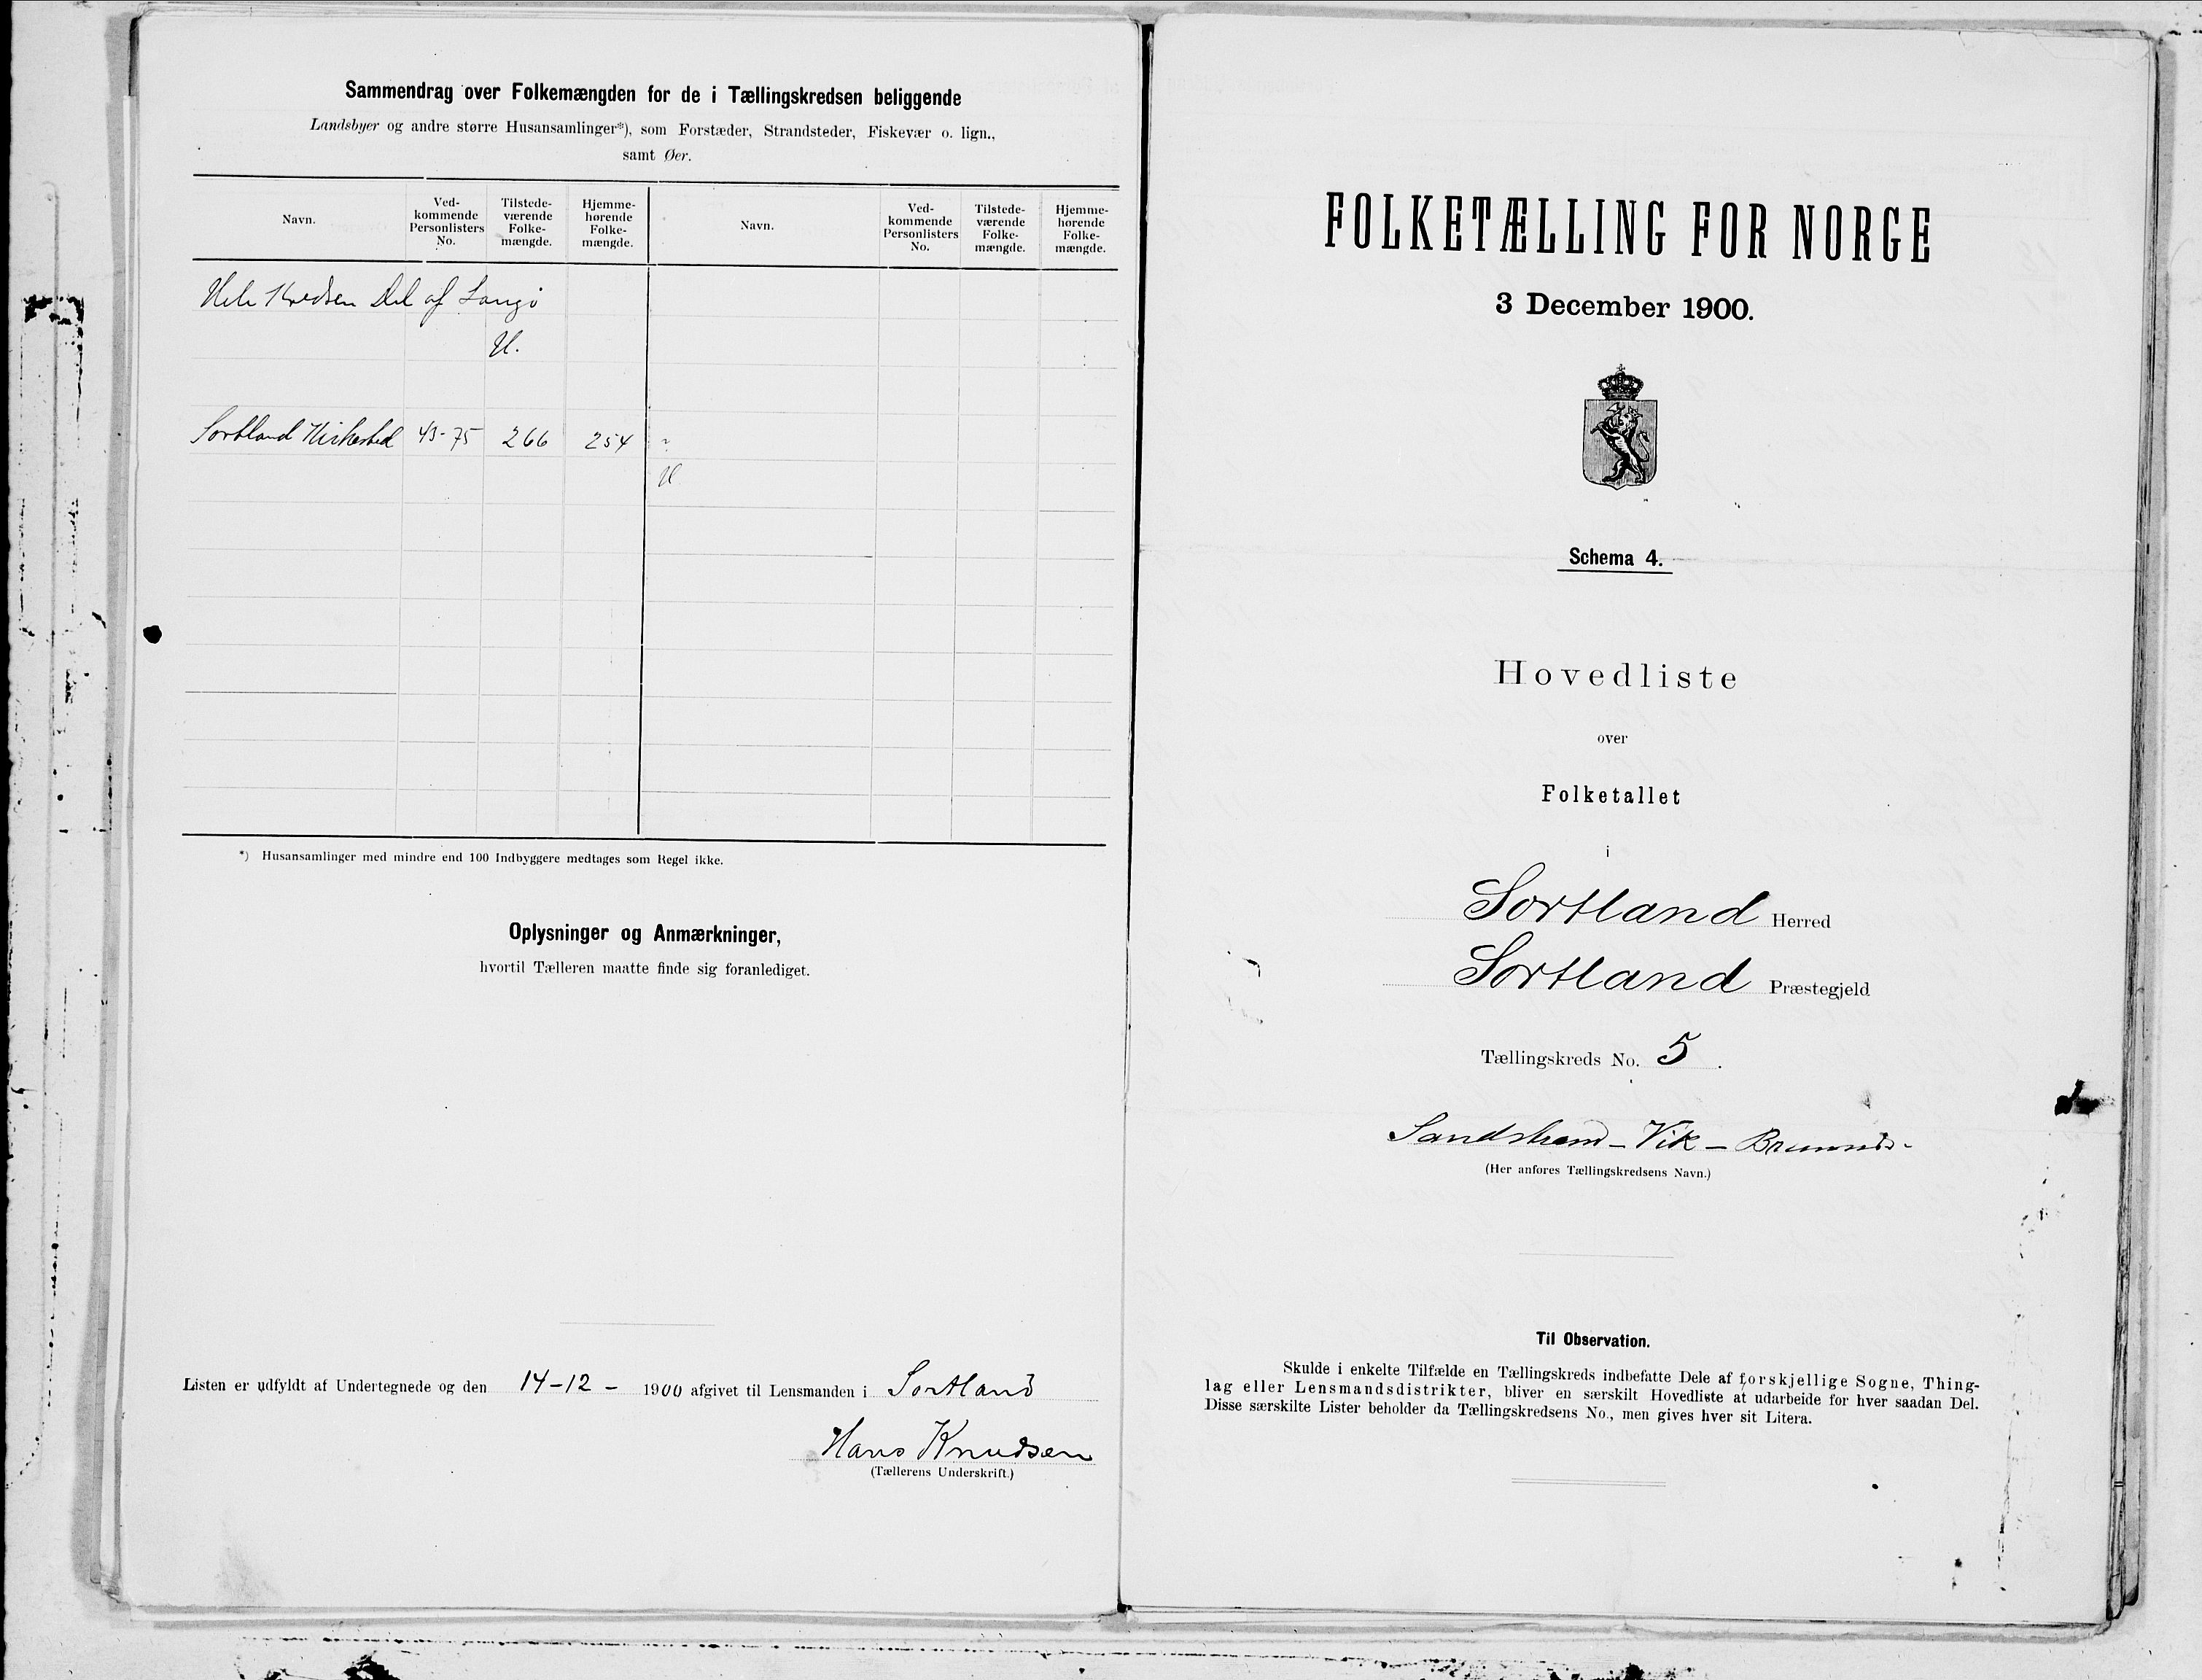 Sammendrag over Folkemængden for de i Tællingskredsen beliggende
Landsbyer og andre større Husansamlinger*), som Forstæder, Strandsteder, Fiskevær o. lign.,
samt Øer.
Navn.
Ved-
kommende
Personlisters
No.
Tilstede-
værende
Folke-
mængde.
Hjemme-
hørende
Folke-
mængde.
Navn.
Ved-
kommende
Personlisters
No.
Tilstede-
værende
Folke-
mængde.
Hjemme-
hørende
Folke-
mængde.
Hele Kredsen Del af Langø
Sortland Kirkested 43-75 266 254
*) Husansamlinger med mindre end 100 Indbyggere medtages som Regel ikke.
Oplysninger og Anmærkninger,
hvortil Tælleren maatte finde sig foranlediget.
Listen er udfyldt af Undertegnede og den 14-12- 1900 afgivet til Lensmanden i Sortland
Hans Knudsen
(Tællerens Underskrift.)
FOLKETÆLLING FOR NORGE
3 December 1900.
Schema 4.
Hovedliste
over
Folketallet
i
Sortland Herred
Sortland Præstegjeld
Tællingskreds No. 5.
Sandstrand - Vik -
(Her anføres Tællingskredsens Navn.)
Til Observation.
Skulde i enkelte Tilfælde en Tællingskreds indbefatte Dele af forskjellige Sogne, Thing-
lag eller Lensmandsdistrikter, bliver en særskilt Hovedliste at udarbeide for hver saadan Del.
Disse særskilte Lister beholder da Tællingskredsens No., men gives hver sit Litera.